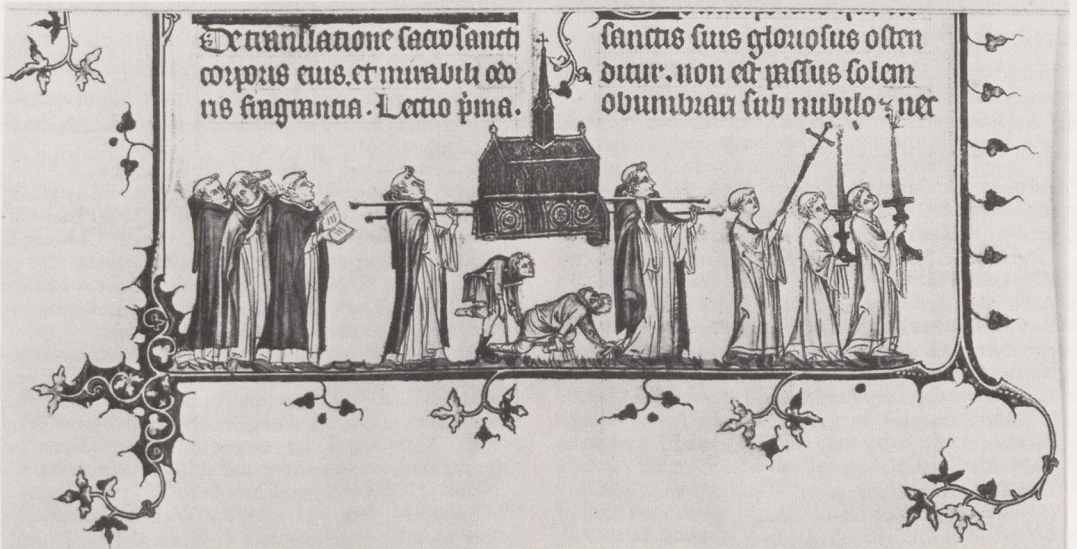 De translatione sacro sancti
corporis eius. et mirabili odo
ris fragrantia. Lectio p̄ma.
sanctis suis gloriosus osten
ditur. non est passus solem
obumbrari sub nubilo ⁊ nec